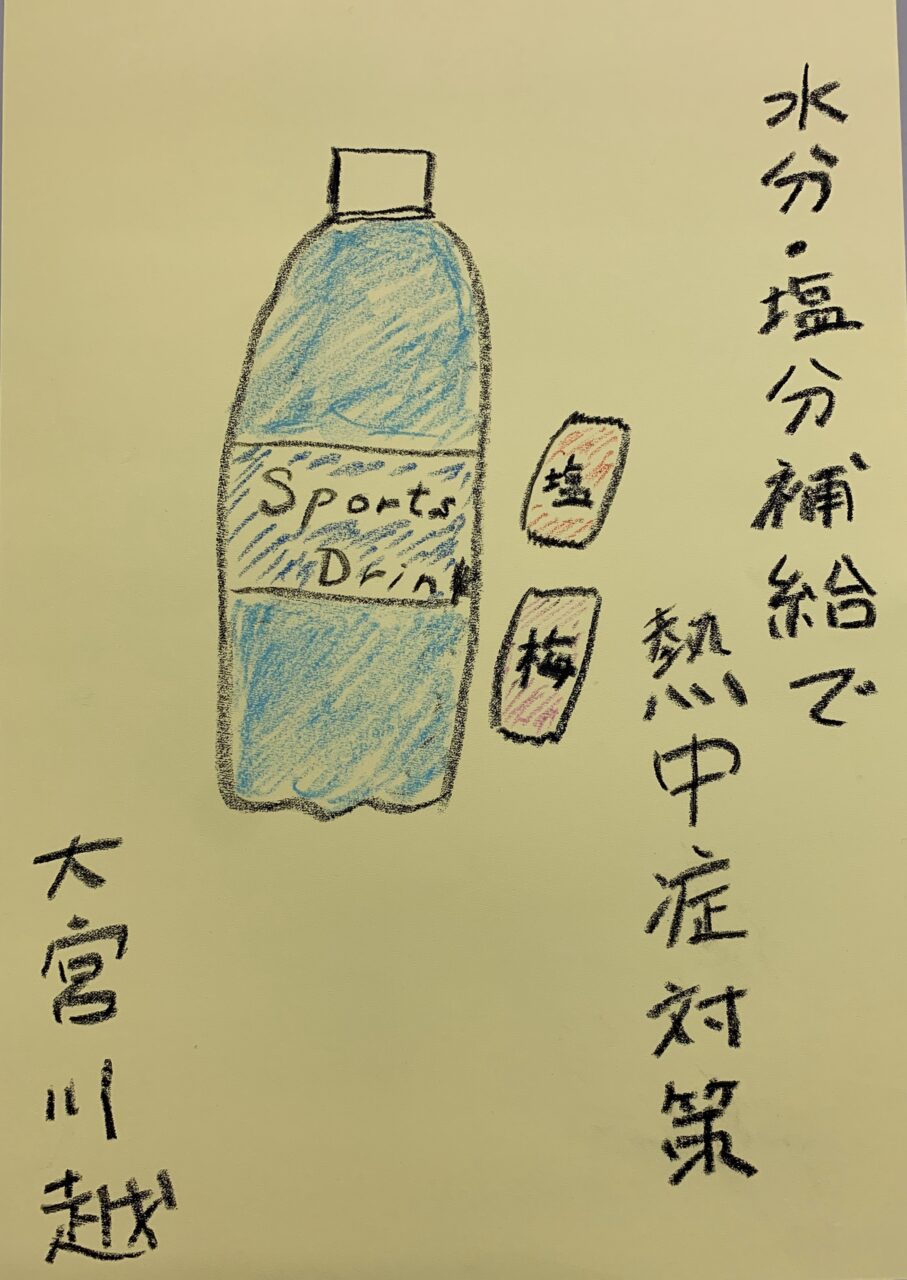 水分・塩分補給で
熱中症対策
Sports
Drink
塩
梅
大宮川越